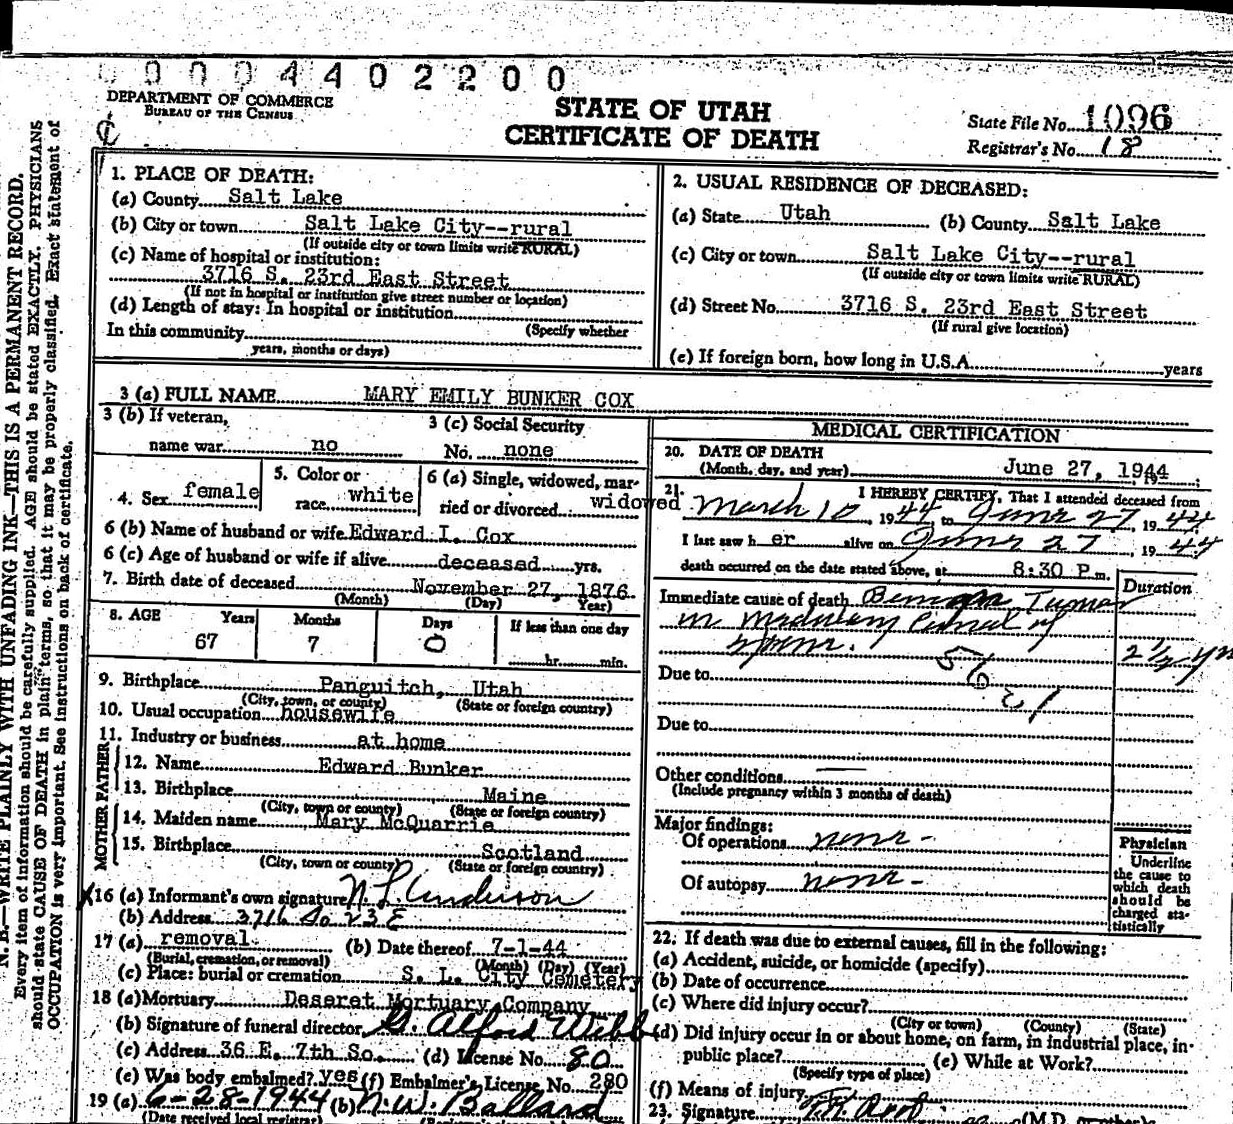 0 0 0 4 4 0 2 2 0 0
DEPARTMENT OF COMMERCE
BUREAU OF THE CENSUS
STATE OF UTAH
CERTIFICATE OF DEATH
State File No. 1096
Registrar's No. 18
N. B.—WRITE PLAINLY WITH UNFADING INK—THIS IS A PERMANENT RECORD.
Every item of information should be carefully supplied. AGE should be stated EXACTLY. PHYSICIANS
should state CAUSE OF DEATH in plain terms, so that it may be properly classified. Exact statement of
OCCUPATION is very important. See instructions on back of certificate.
1. PLACE OF DEATH:
(a) County Salt Lake
(b) City or town Salt Lake City--rural
(If outside city or town limits write RURAL)
(c) Name of hospital or institution:
3716 S. 23rd East Street
(If not in hospital or institution give street number or location)
(d) Length of stay: In hospital or institution
(Specify whether
In this community
years, months or days)
2. USUAL RESIDENCE OF DECEASED:
(a) State Utah (b) County Salt Lake
(c) City or town Salt Lake City--rural
(If outside city or town limits write RURAL)
(d) Street No. 3716 S. 23rd East Street
(If rural give location)
(e) If foreign born, how long in U.S.A. years
3 (a) FULL NAME MARY EMILY BUNKER COX
3 (b) If veteran,
name war no
3 (c) Social Security
No. none
4. Sex female
5. Color or
race white
6 (a) Single, widowed, mar-
ried or divorced widowed
6 (b) Name of husband or wife Edward I. Cox
6 (c) Age of husband or wife if alive deceased yrs.
7. Birth date of deceased November 27, 1876
(Month) (Day) Year)
8. AGE Years Months Days If less than one day
67 7 0 hr. min.
9. Birthplace Panguitch, Utah
(City, town, or county) (State or foreign country)
10. Usual occupation housewife
11. Industry or business at home
FATHER
12. Name Edward Bunker
13. Birthplace Maine
(City, town or county) (State or foreign country)
MOTHER
14. Maiden name Mary McQuarrie
15. Birthplace Scotland
(City, town or county) (State or foreign country)
X16 (a) Informant's own signature N. L. Anderson
(b) Address 3716 So 23 E
17 (a) removal (b) Date thereof 7-1-44
(Burial, cremation, or removal) (Month) (Day) (Year)
(c) Place: burial or cremation S. L. City Cemetery
18 (a) Mortuary Deseret Mortuary Company
(b) Signature of funeral director G. Alford Webb
(c) Address 36 E. 7th So. (d) License No. 80
(e) Was body embalmed? yes (f) Embalmer's License No. 280
19 (a) 6-28-1944 (b) N. W. Ballard
(Date received local registrar)
MEDICAL CERTIFICATION
20. DATE OF DEATH
(Month, day, and year) June 27, 1944
21. I HEREBY CERTIFY, That I attended deceased from
March 10, 1944 to June 27, 1944
I last saw her alive on June 27, 1944
death occurred on the date stated above, at 8:30 P.m.
Duration
Immediate cause of death Benign Tumor
in medulary canal of
spine. 2 1/2 yr
Due to 56
Due to
Other conditions
(Include pregnancy within 3 months of death)
Major findings:
Of operations none -
Of autopsy none -
Physician
Underline
the cause to
which death
should be
charged sta-
tistically
22. If death was due to external causes, fill in the following:
(a) Accident, suicide, or homicide (specify)
(b) Date of occurrence
(c) Where did injury occur?
(City or town) (County) (State)
(d) Did injury occur in or about home, on farm, in industrial place, in
public place? (e) While at Work?
(Specify type of place)
(f) Means of injury
23. Signature (M.D. or other)